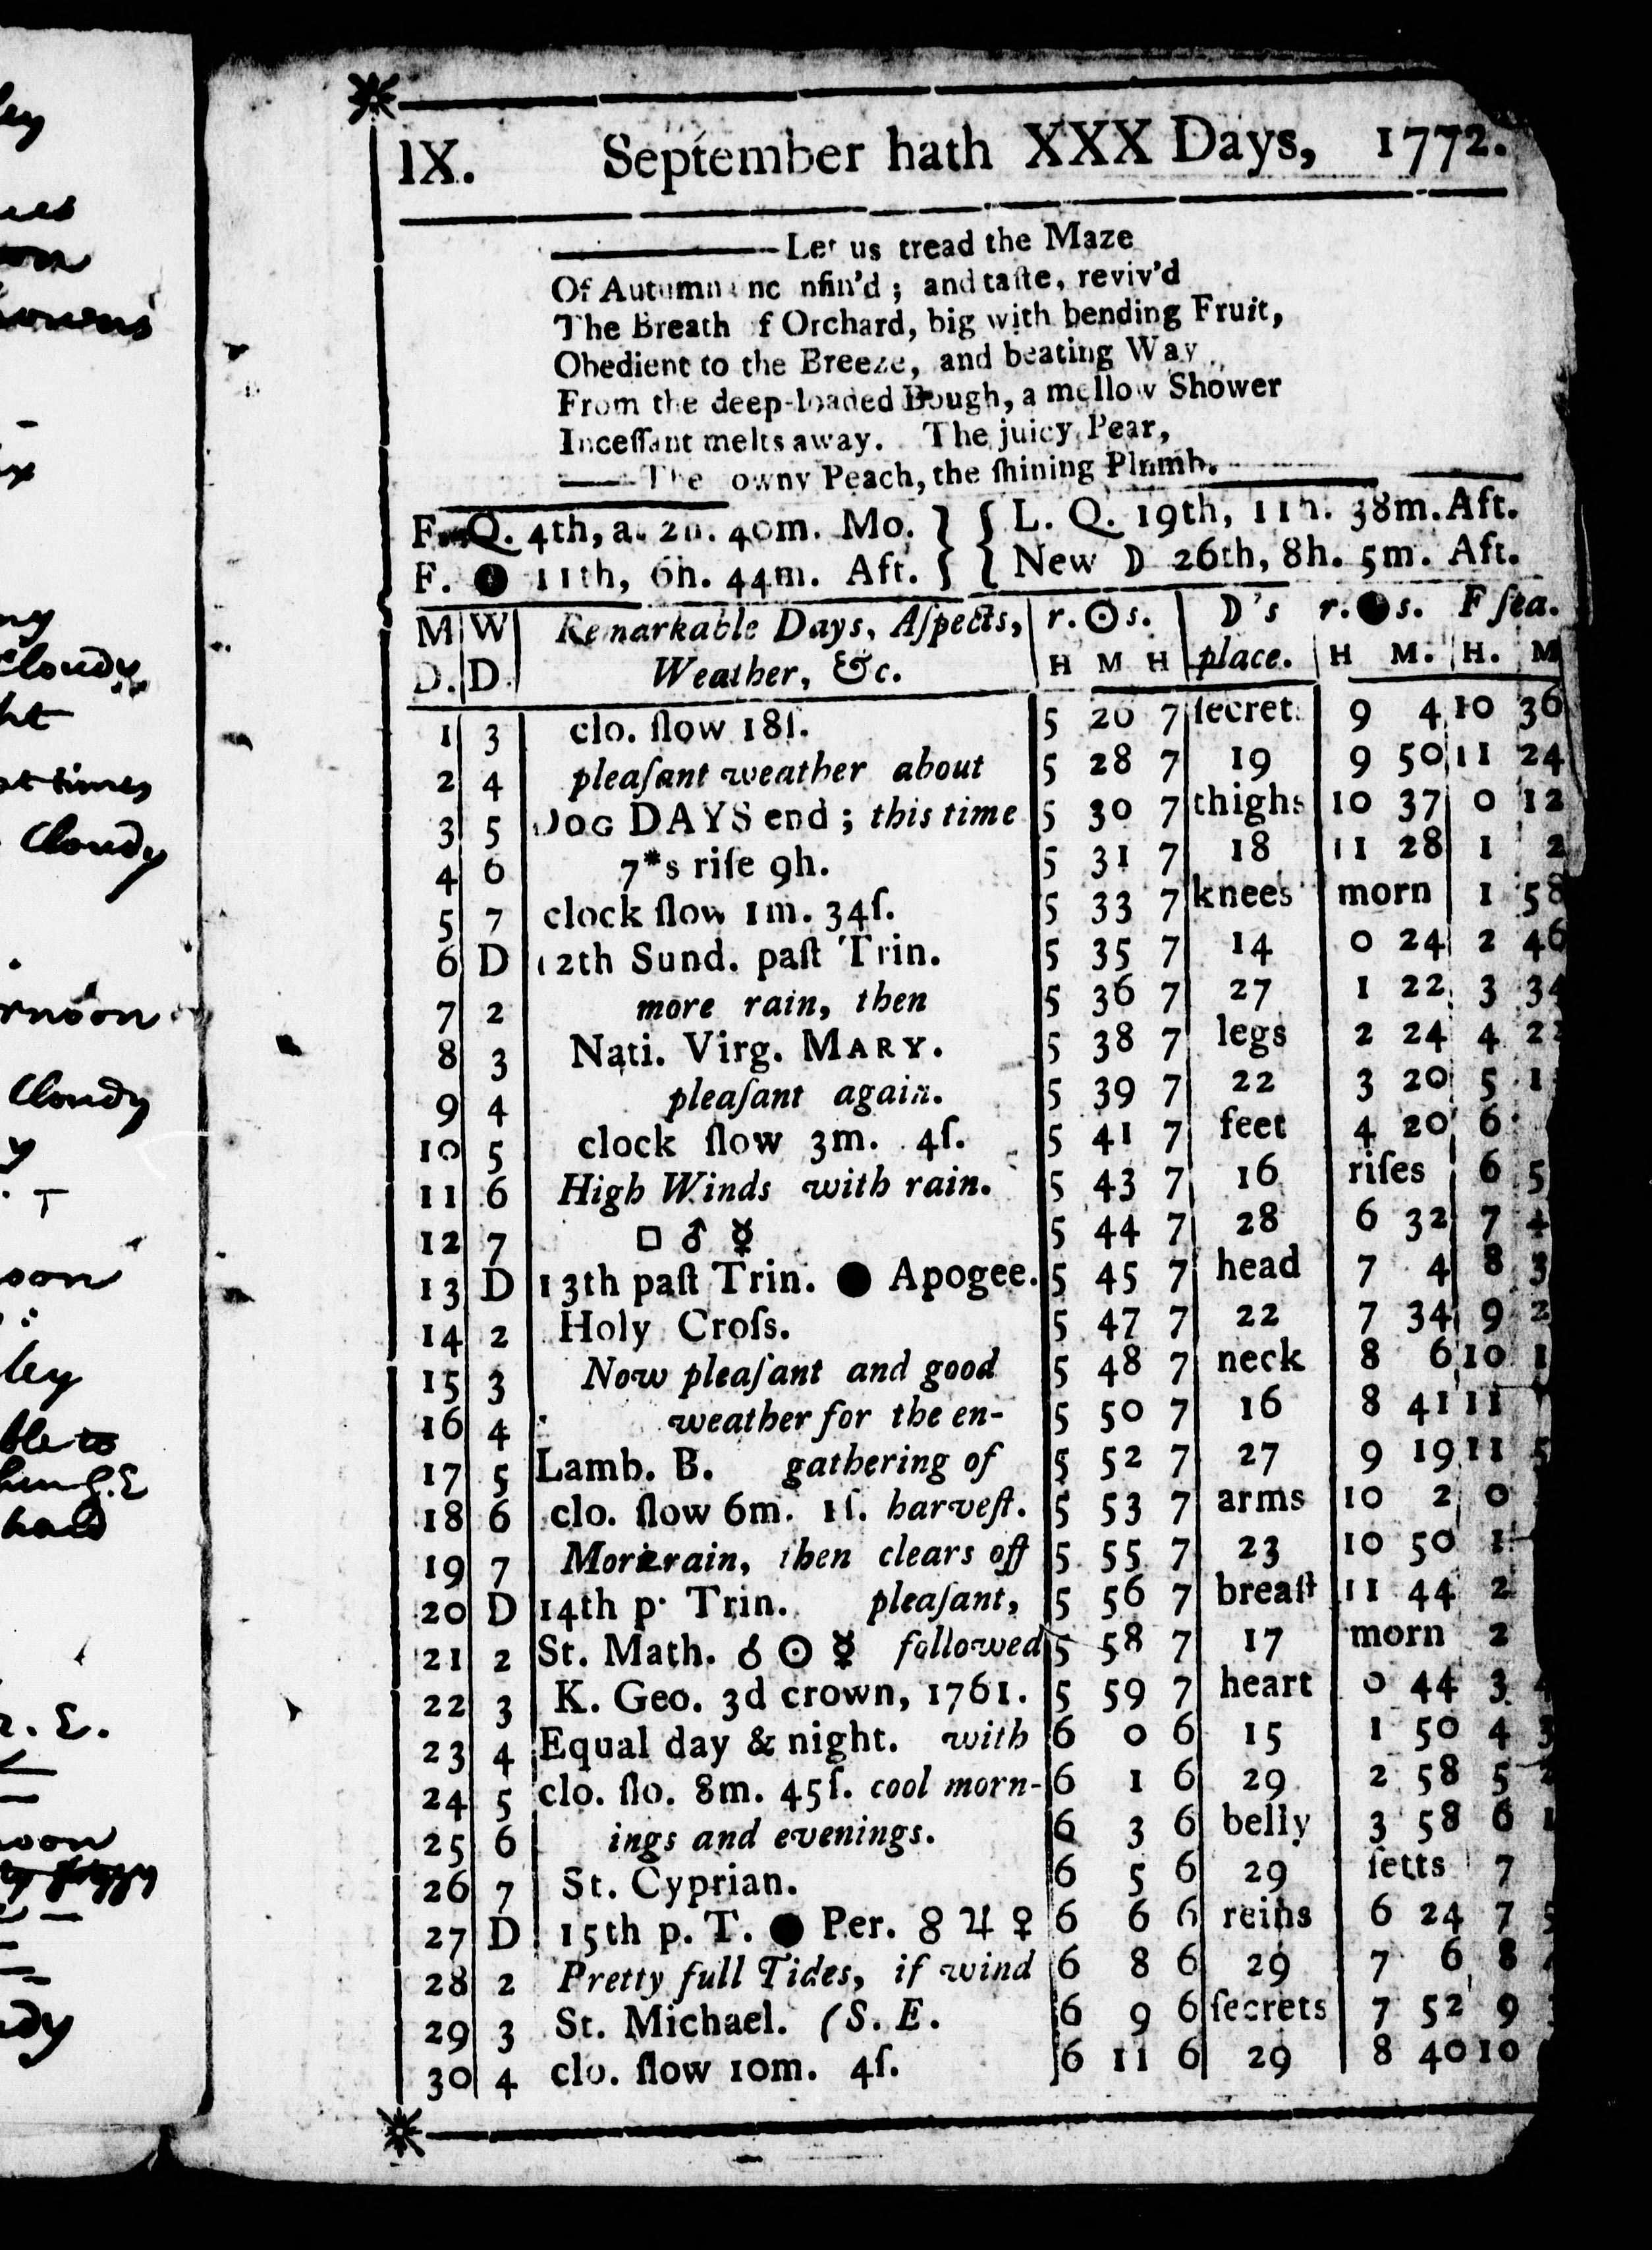 ley
on
owens
ny
cloudy
ht
at times
Cloudy
rnoon
Cloudy
y
T
oon
ley
ble to
hard
. E.
noon
dy
IX. September hath XXX Days, 1772.
Let us tread the Maze
Of Autumn unc nfin'd ; and taſte, reviv'd
The Breath f Orchard, big with bending Fruit,
Obedient to the Breeze, and beating Way
From the deep-loaded Bough, a mellow Shower
Inceſſant melts away. The juicy Pear,
The owny Peach, the ſhining Plumb.
F. Q. 4th, at 2h. 40m. Mo. } { L. Q. 19th, 11h. 38m. Aft.
F. ● 11th, 6h. 44m. Aft. } { New D 26th, 8h. 5m. Aft.
M W Remarkable Days, Aſpects, r. ☉ s. D's r. ● s. F ſea.
D. D. Weather, &c. H M H place. H M. H. M
1 3 clo. ſlow 18ſ. 5 26 7 ſecret 9 4 10 36
2 4 pleaſant weather about 5 28 7 19 9 50 11 24
3 5 DOG DAYS end ; this time 5 30 7 thighs 10 37 0 12
4 6 7*s riſe 9h. 5 31 7 18 11 28 1 2
5 7 clock ſlow 1m. 34ſ. 5 33 7 knees morn 1 58
6 D 12th Sund. paſt Trin. 5 35 7 14 0 24 2 46
7 2 more rain, then 5 36 7 27 1 22 3 34
8 3 Nati. Virg. MARY. 5 38 7 legs 2 24 4 2
9 4 pleaſant again. 5 39 7 22 3 20 5 1
10 5 clock ſlow 3m. 4ſ. 5 41 7 feet 4 20 6
11 6 High Winds with rain. 5 43 7 16 riſes 6 5
12 7 □ ♂ ☿ 5 44 7 28 6 32 7 4
13 D 13th paſt Trin. ● Apogee. 5 45 7 head 7 4 8 3
14 2 Holy Croſs. 5 47 7 22 7 34 9 2
15 3 Now pleaſant and good 5 48 7 neck 8 6 10 1
16 4 weather for the en- 5 50 7 16 8 41 11
17 5 Lamb. B. gathering of 5 52 7 27 9 19 11 5
18 6 clo. ſlow 6m. 1ſ. harveſt. 5 53 7 arms 10 2 0
19 7 More rain, then clears off 5 55 7 23 10 50 1
20 D 14th p. Trin. pleaſant, 5 56 7 breaſt 11 44 2
21 2 St. Math. ☌ ☉ ☿ followed 5 58 7 17 morn 2
22 3 K. Geo. 3d crown, 1761. 5 59 7 heart 0 44 3 4
23 4 Equal day & night. with 6 0 6 15 1 50 4 3
24 5 clo. ſlo. 8m. 45ſ. cool morn- 6 1 6 29 2 58 5 2
25 6 ings and evenings. 6 3 6 belly 3 58 6 1
26 7 St. Cyprian. 6 5 6 29 ſetts 7
27 D 15th p. T. ● Per. ☍ ♃ ♀ 6 6 6 reins 6 24 7 5
28 2 Pretty full Tides, if wind 6 8 6 29 7 6 8
29 3 St. Michael. (S. E. 6 9 6 ſecrets 7 52 9
30 4 clo. ſlow 10m. 4ſ. 6 11 6 29 8 40 10